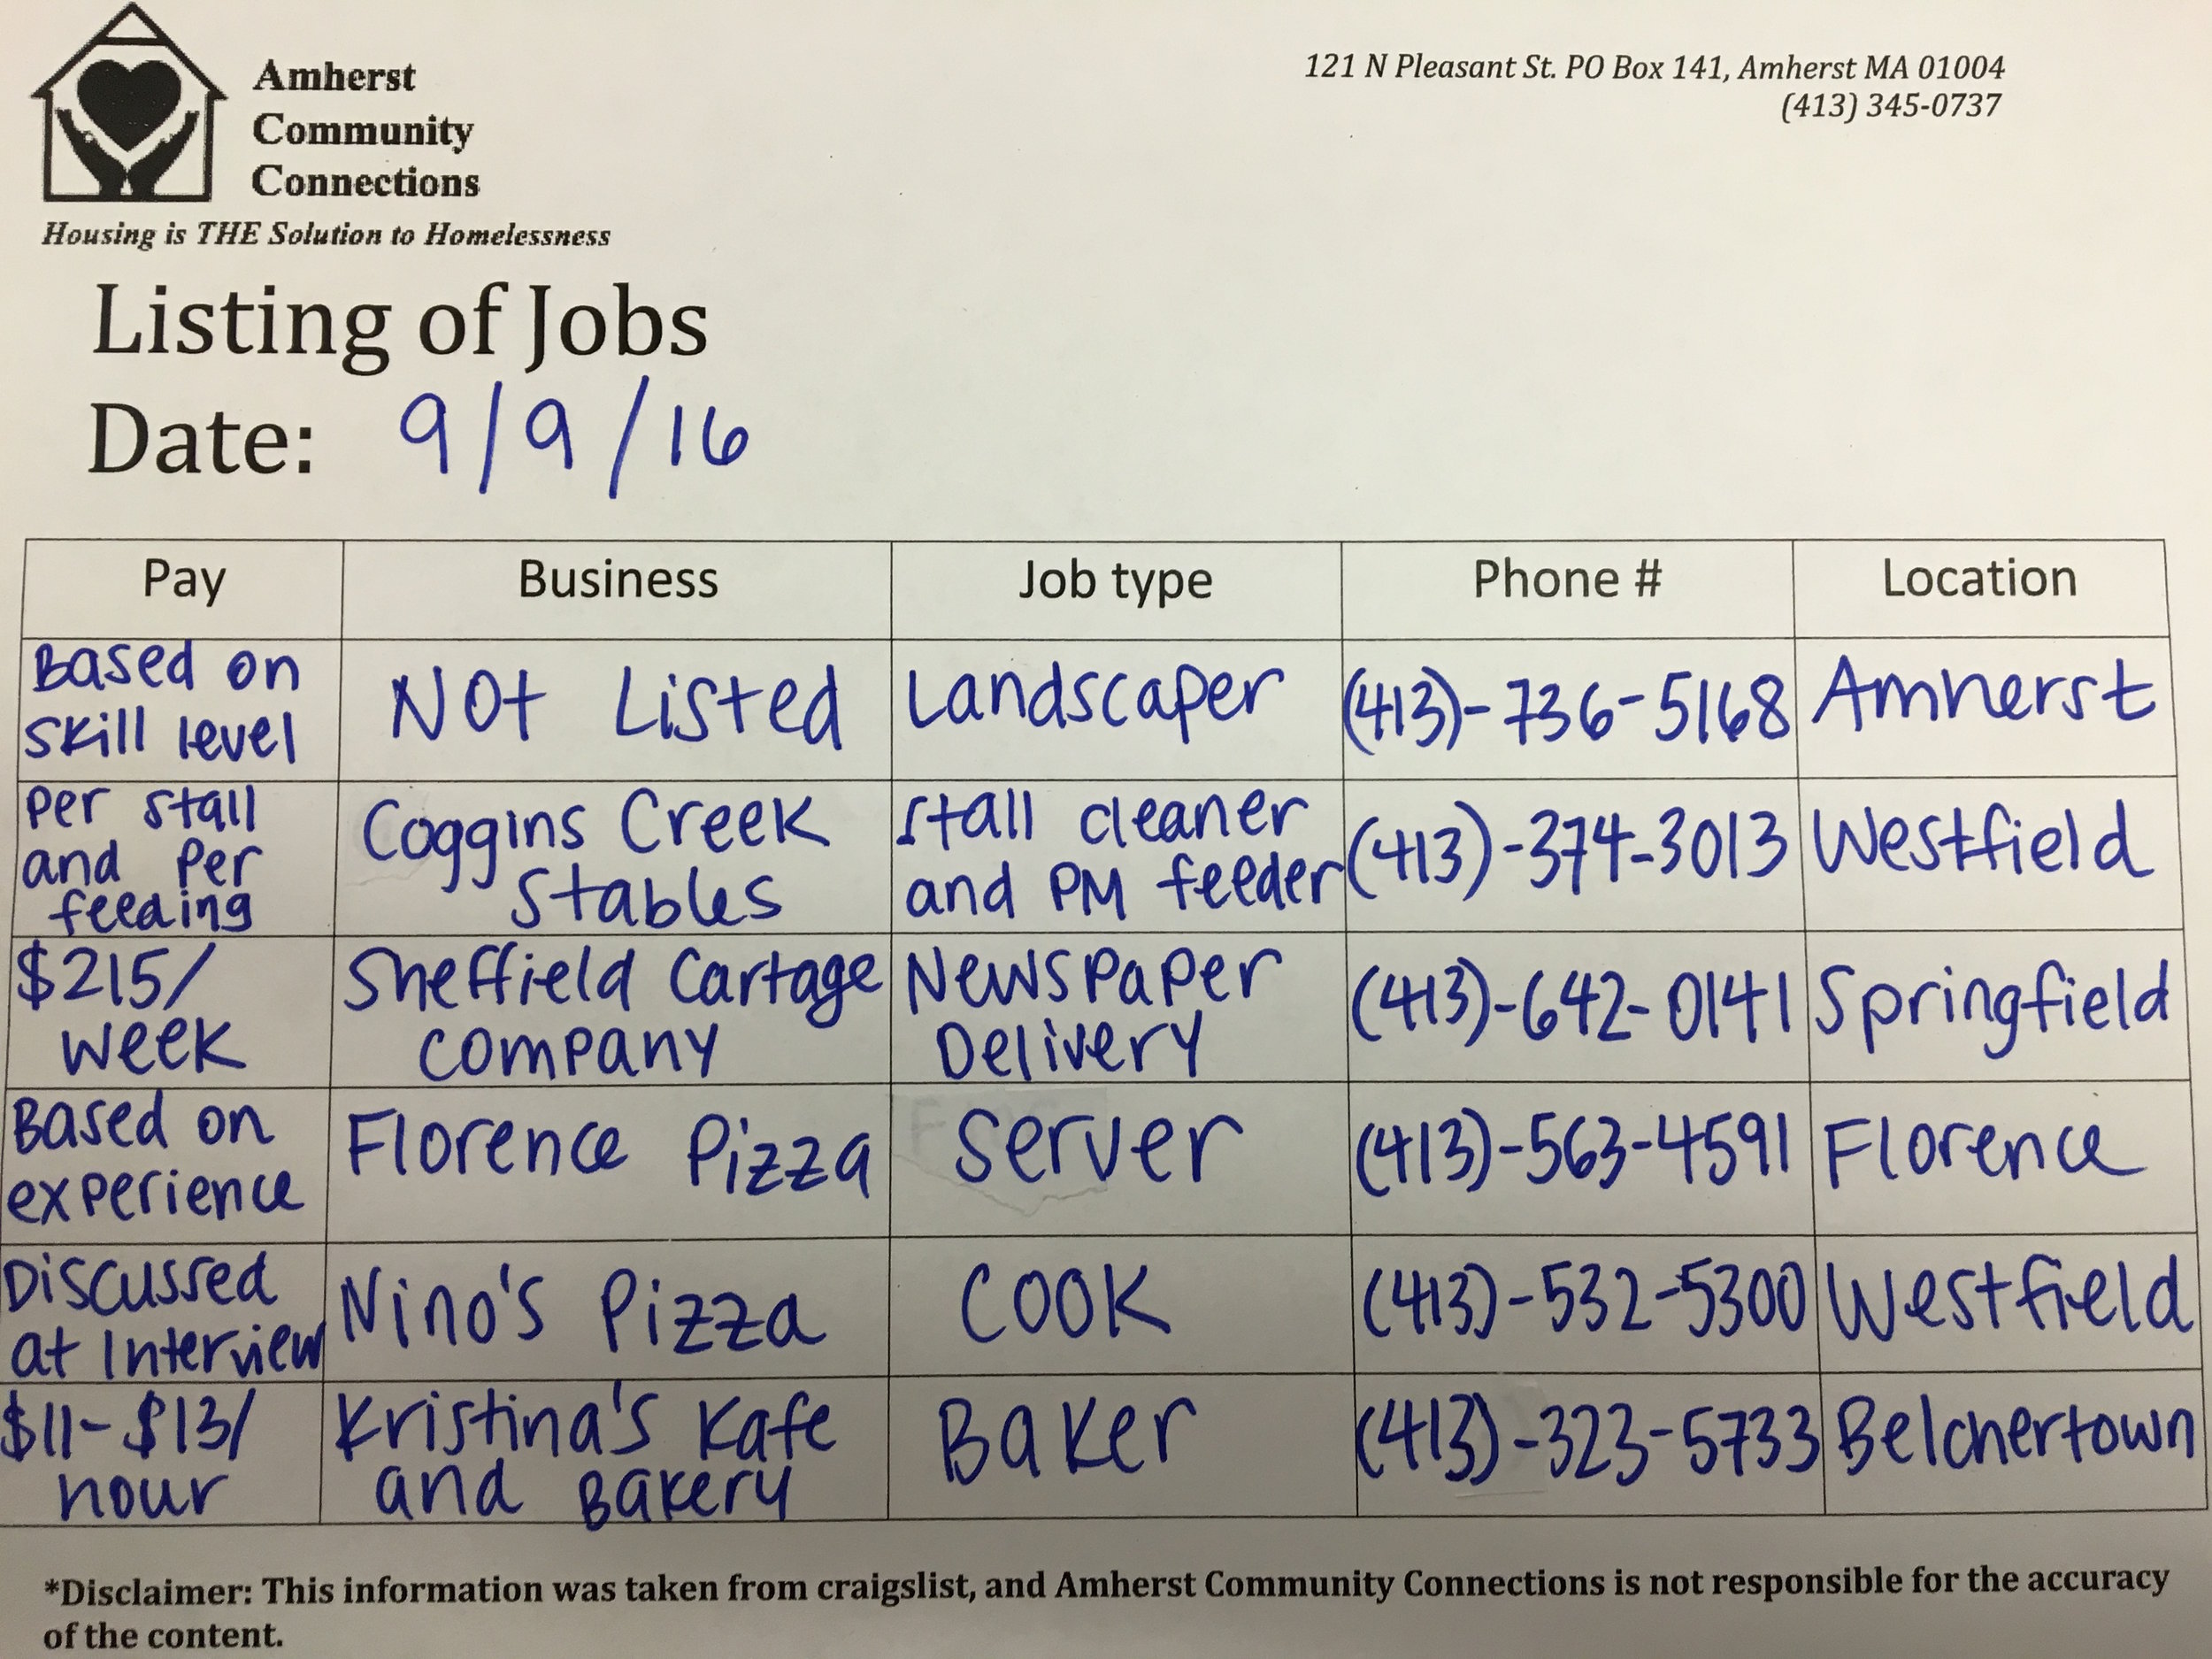 Amherst
Community
Connections
Housing is THE Solution to Homelessness
121 N Pleasant St. PO Box 141, Amherst MA 01004
(413) 345-0737
Listing of Jobs
Date: 9/9/16
Pay Business Job type Phone # Location
Based on
skill level
Not Listed
Landscaper
(413)-736-5168
Amherst
Per stall
and Per
feeding
Coggins Creek
Stables
stall cleaner
and PM feeder
(413)-374-3013
Westfield
$215/
week
Sheffield Cartage
company
Newspaper
Delivery
(413)-642-0141
Springfield
Based on
experience
Florence Pizza
server
(413)-563-4591
Florence
Discussed
at Interview
Nino's Pizza
Cook
(413)-532-5300
Westfield
$11-$13/
hour
Kristina's Kafe
and Bakery
Baker
(413)-323-5733
Belchertown
*Disclaimer: This information was taken from craigslist, and Amherst Community Connections is not responsible for the accuracy
of the content.